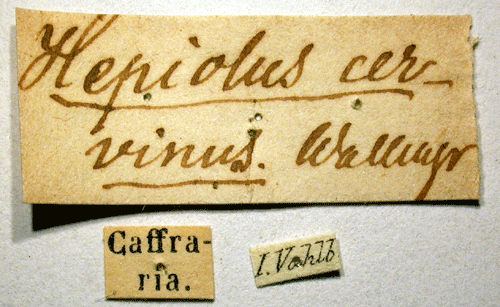 Hepiolus cer-
vinus. Wallengr
Caffra-
ria.
I. Vahlb